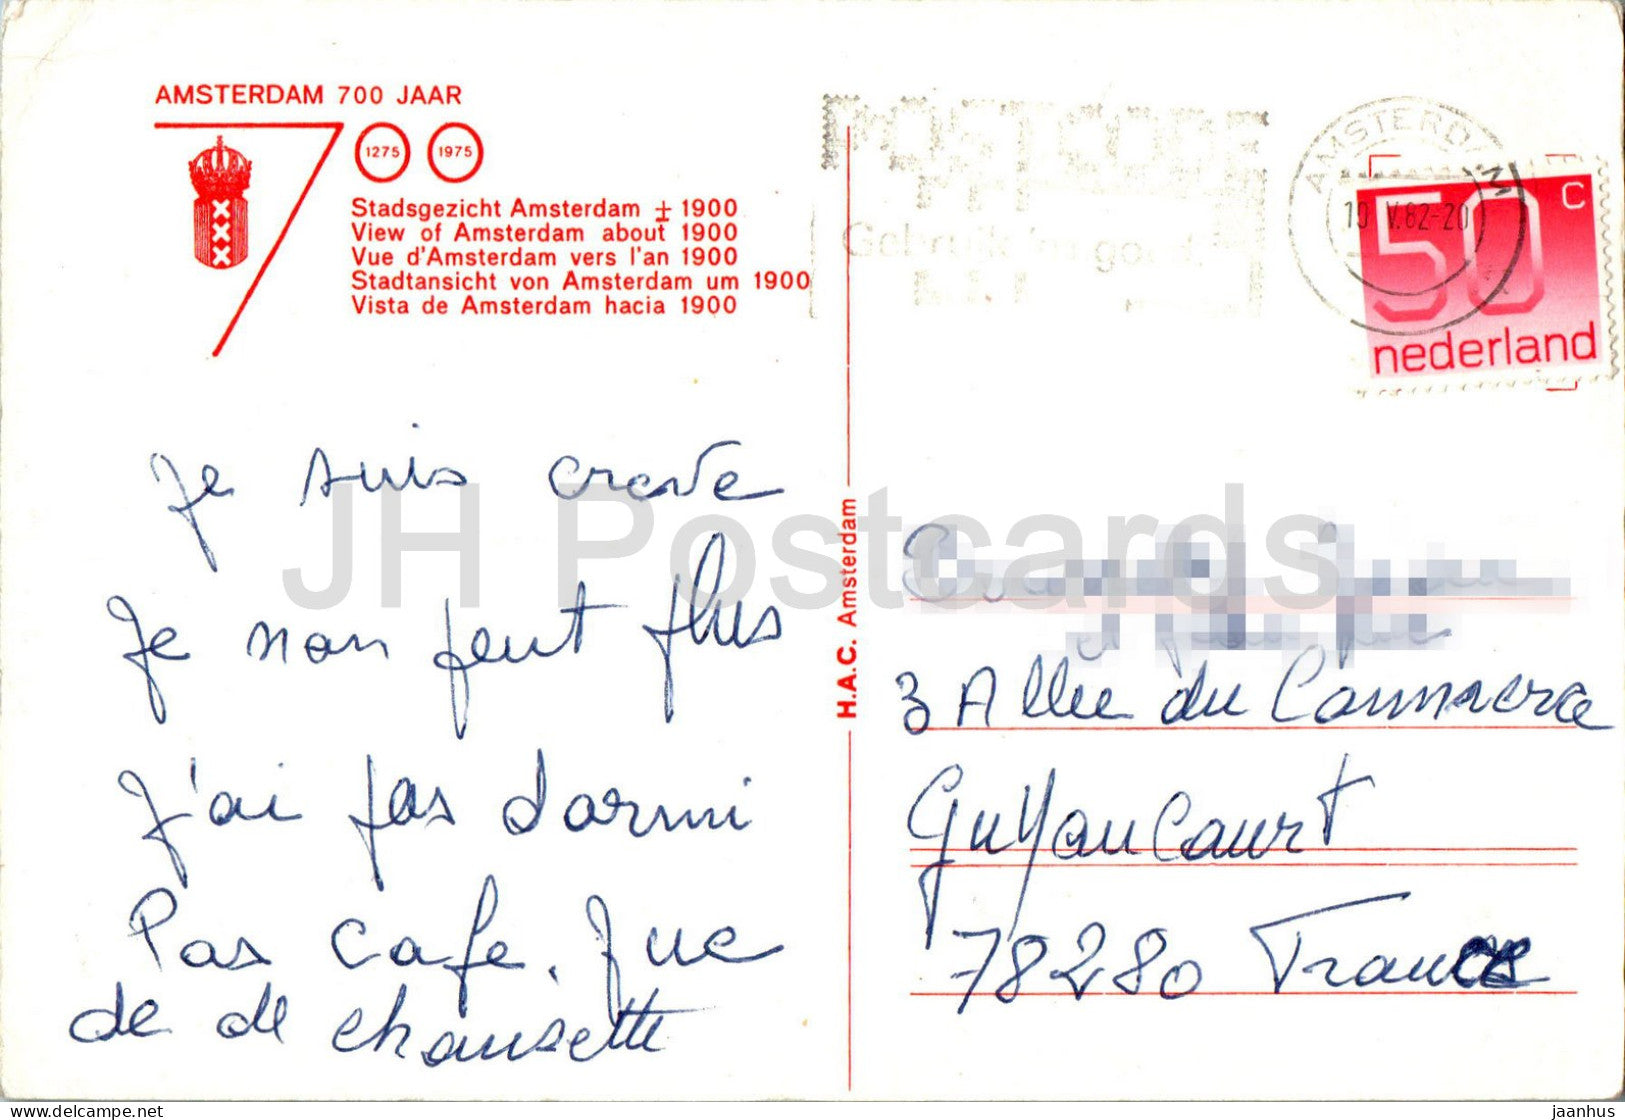 AMSTERDAM 700 JAAR
1275 1975
Stadsgezicht Amsterdam ± 1900
View of Amsterdam about 1900
Vue d'Amsterdam vers l'an 1900
Stadtansicht von Amsterdam um 1900
Vista de Amsterdam hacia 1900
POSTCODE
AMSTERDAM
10 V.82-20
50 c
nederland
Je suis creve
Je non peut plus
J'ai pas dormi
Pas cafe. Que
de de chausette
H.A.C. Amsterdam
3 Allee du Commerce
Guyancourt
78280 France
JH Postcards
www.delcampe.net
jaanhus